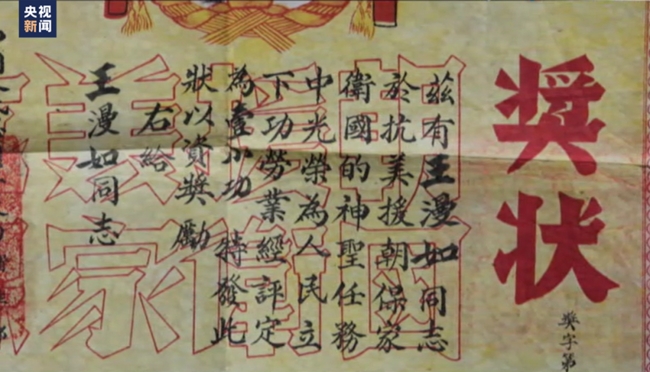 央视
新闻
奬状
奬字第
兹有王漫如同志
於抗美援朝保家
衛國的神聖任務
中光榮為人民立
下功勞業經評定
為壹小功特發此
狀以資奬勵
右給
王漫如同志
美援朝
家衛國